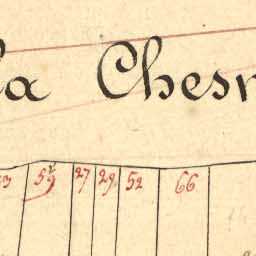 la Chesn
27 29 52 66